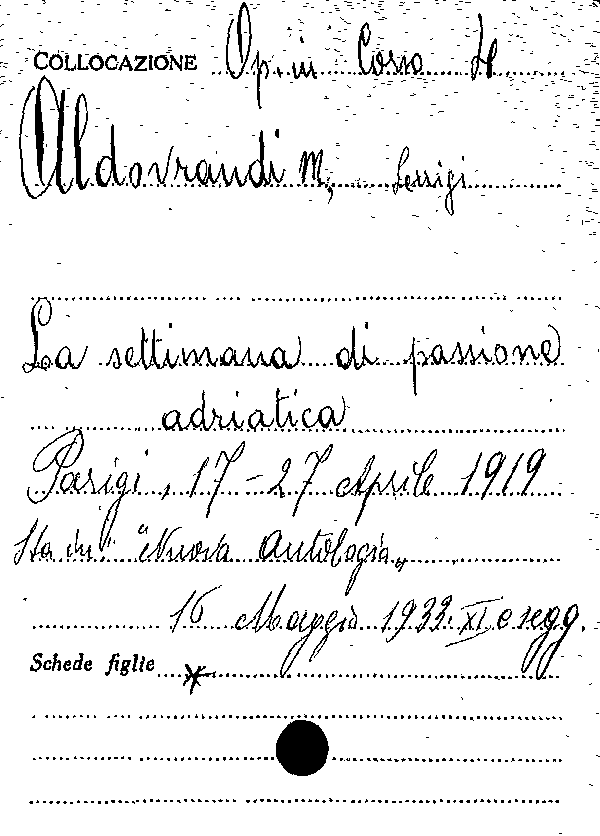 COLLOCAZIONE Op. in Corso
Aldovrandi M., Luigi
La settimana di passione
adriatica
Parigi, 17-27 Aprile 1919
Sta in: "Nuova Antologia"
16 Maggio 1933. XI e segg.
Schede figlie *